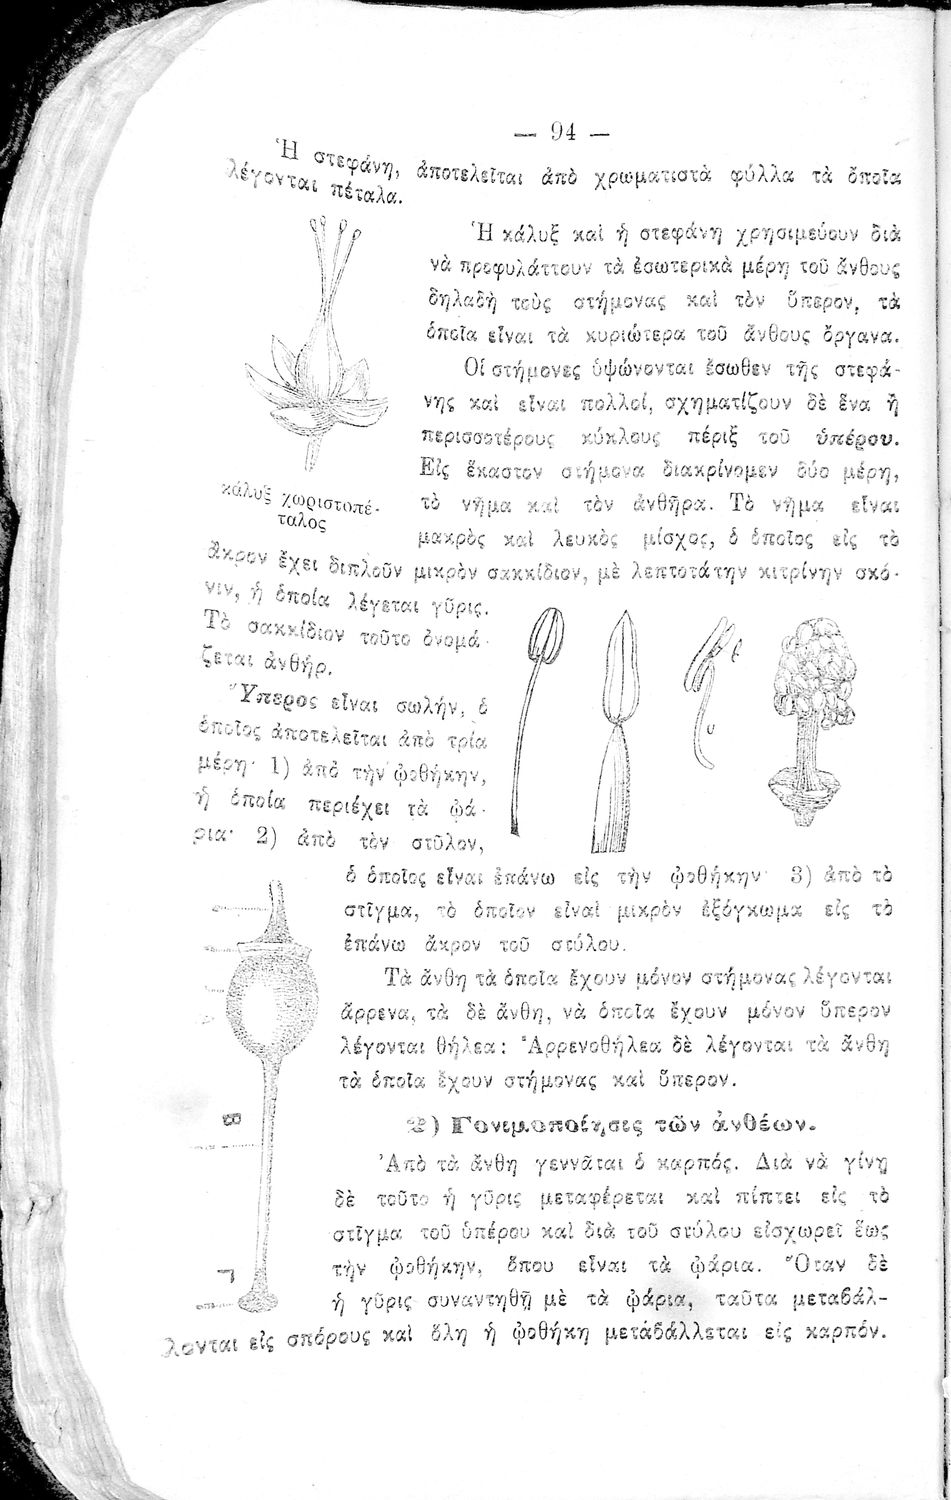 — 94 —
Ἡ στεφάνη, ἀποτελεῖται ἀπὸ χρωματιστὰ φύλλα τὰ ὅποῖα
λέγονται πέταλα.
Ἡ κάλυξ καὶ ἡ στεφάνη χρησιμεύουν διὰ
νὰ προφυλάττουν τὰ ἐσωτερικὰ μέρη τοῦ ἄνθους
δηλαδὴ τοὺς στήμονας καὶ τὸν ὕπερον, τὰ
ὁποῖα εἶναι τὰ κυριώτερα τοῦ ἄνθους ὄργανα.
Οἱ στήμονες ὑψώνονται ἔσωθεν τῆς στεφά-
νης καὶ εἶναι πολλοί, σχηματίζουν δὲ ἕνα ἢ
περισσοτέρους κύκλους πέριξ τοῦ ὑπέρου.
Εἰς ἕκαστον στήμονα διακρίνομεν δύο μέρη,
τὸ νῆμα καὶ τὸν ἀνθῆρα. Τὸ νῆμα εἶναι
μακρὸς καὶ λευκὸς μίσχος, ὁ ὁποῖος εἰς τὸ
κάλυξ χωριστοπέ-
ταλος
ἄκρον ἔχει διπλοῦν μικρὸν σακκίδιον, μὲ λεπτοτάτην κιτρίνην σκό-
νιν, ἡ ὁποία λέγεται γῦρις.
Τὸ σακκίδιον τοῦτο ὀνομά-
ζεται ἀνθήρ.
Ὕπερος εἶναι σωλήν, ὁ
ὁποῖος ἀποτελεῖται ἀπὸ τρία
μέρη· 1) ἀπὸ τὴν ᾠοθήκην,
ἡ ὁποία περιέχει τὰ ᾠά-
ρια· 2) ἀπὸ τὸν στῦλον,
ὁ ὁποῖος εἶναι ἐπάνω εἰς τὴν ᾠοθήκην· 3) ἀπὸ τὸ
στῖγμα, τὸ ὁποῖον εἶναὶ μικρὸν ἐξόγκωμα εἰς τὸ
ἐπάνω ἄκρον τοῦ στύλου.
Τὰ ἄνθη τὰ ὁποῖα ἔχουν μόνον στήμονας λέγονται
ἄρρενα, τὰ δὲ ἄνθη, νὰ ὁποῖα ἔχουν μόνον ὕπερον
λέγονται θήλεα: Ἀρρενοθήλεα δὲ λέγονται τὰ ἄνθη
τὰ ὁποῖα ἔχουν στήμονας καὶ ὕπερον.
2) Γονιμοποίησις τῶν ἀνθέων.
Ἀπὸ τὰ ἄνθη γεννᾶται ὁ καρπός. Διὰ νὰ γίνῃ
B
δὲ τοῦτο ἡ γῦρις μεταφέρεται καὶ πίπτει εἰς τὸ
στῖγμα τοῦ ὑπέρου καὶ διὰ τοῦ στύλου εἰσχωρεῖ ἕως
τὴν ᾠοθήκην, ὅπου εἶναι τὰ ᾠάρια. Ὅταν δὲ
Γ
ἡ γῦρις συναντηθῇ μὲ τὰ ᾠάρια, ταῦτα μεταβάλ-
λονται εἰς σπόρους καὶ ὅλη ἡ ᾠοθήκη μετάβάλλεται εἰς καρπόν.